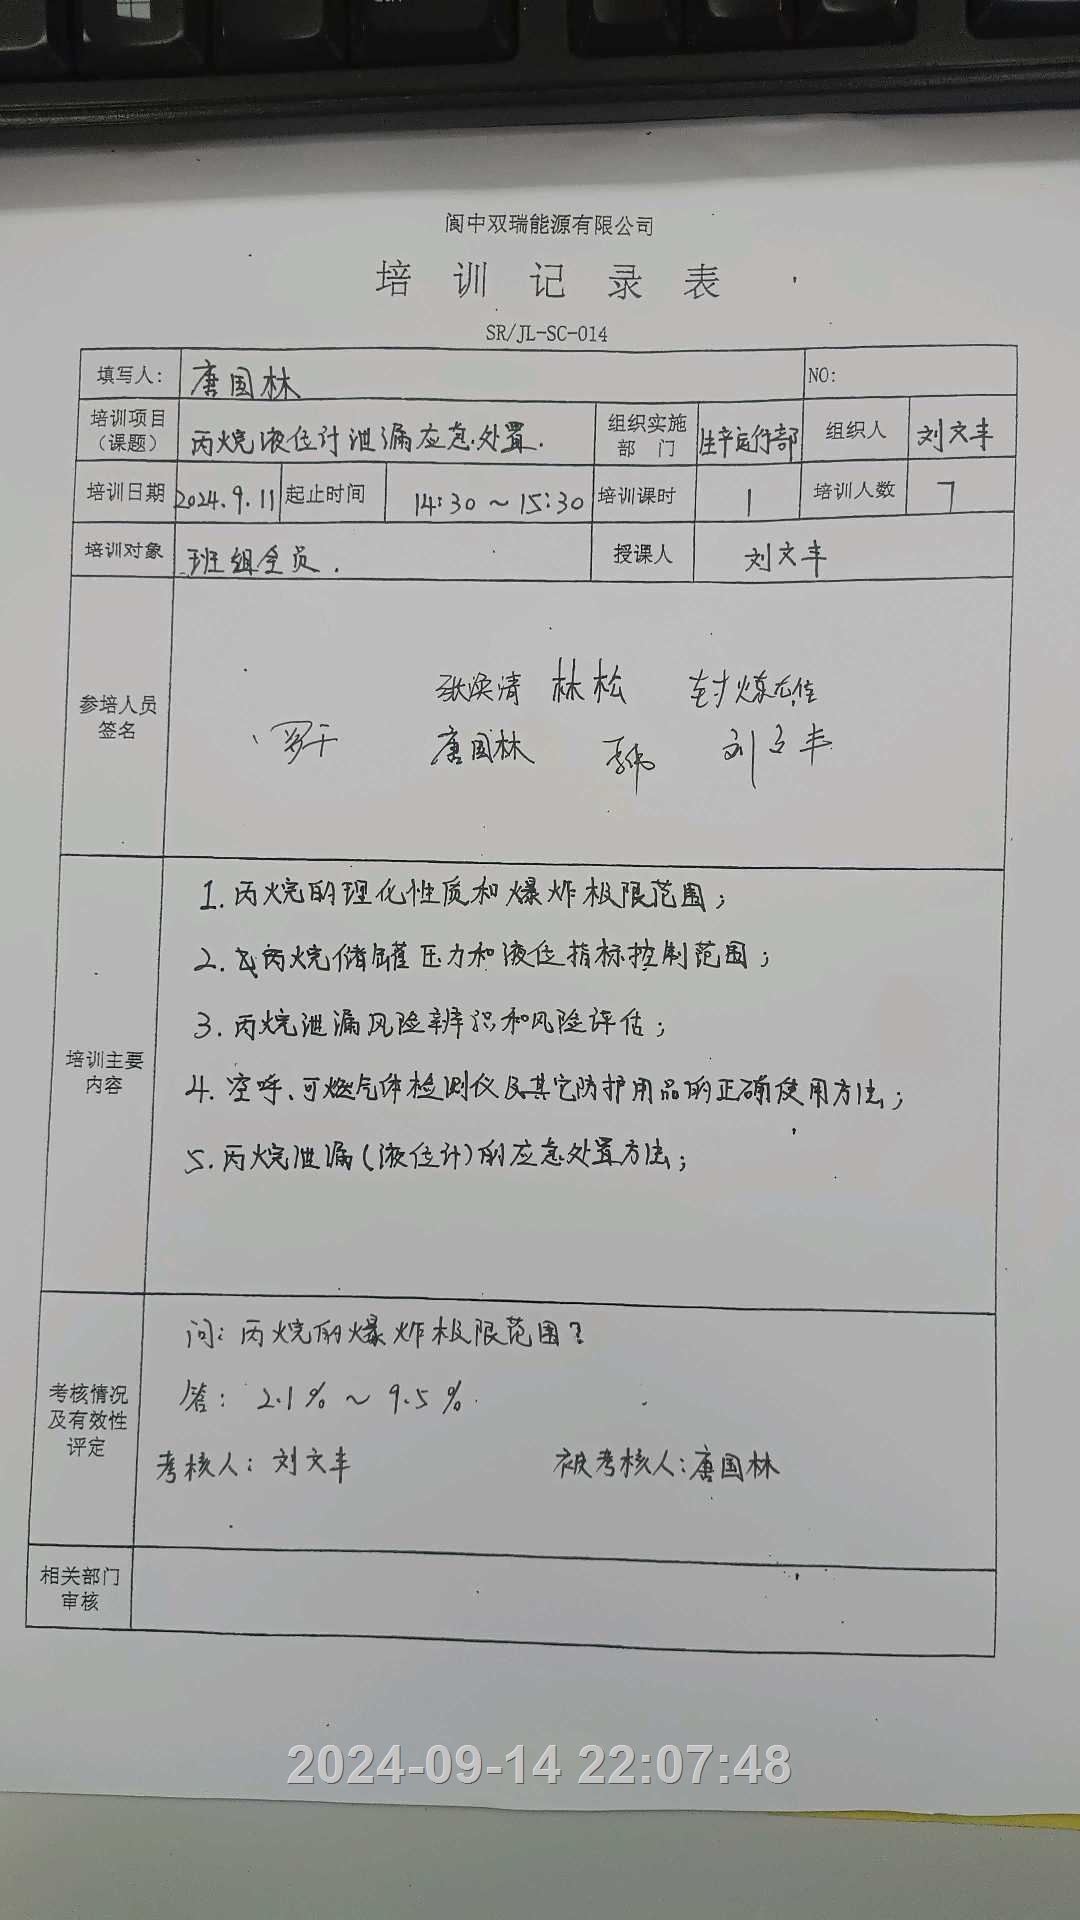 阆中双瑞能源有限公司
培训记录表
SR/JL-SC-014
填写人: 唐国林 NO:
培训项目(课题) 丙烷液位计泄漏应急处置. 组织实施部门 生产运行部 组织人 刘文丰
培训日期 2024.9.11 起止时间 14:30~15:30 培训课时 1 培训人数 7
培训对象 班组全员. 授课人 刘文丰
参培人员签名
林松
罗干 唐国林 刘文丰
培训主要内容
1.丙烷的理化性质和爆炸极限范围;
2.丙烷储罐压力和液位指标控制范围;
3.丙烷泄漏风险辨识和风险评估;
4.空呼、可燃气体检测仪及其它防护用品的正确使用方法;
5.丙烷泄漏(液位计)的应急处置方法;
考核情况及有效性评定
问:丙烷的爆炸极限范围?
答: 2.1%~9.5%.
考核人: 刘文丰 被考核人:唐国林
相关部门审核
2024-09-14 22:07:48